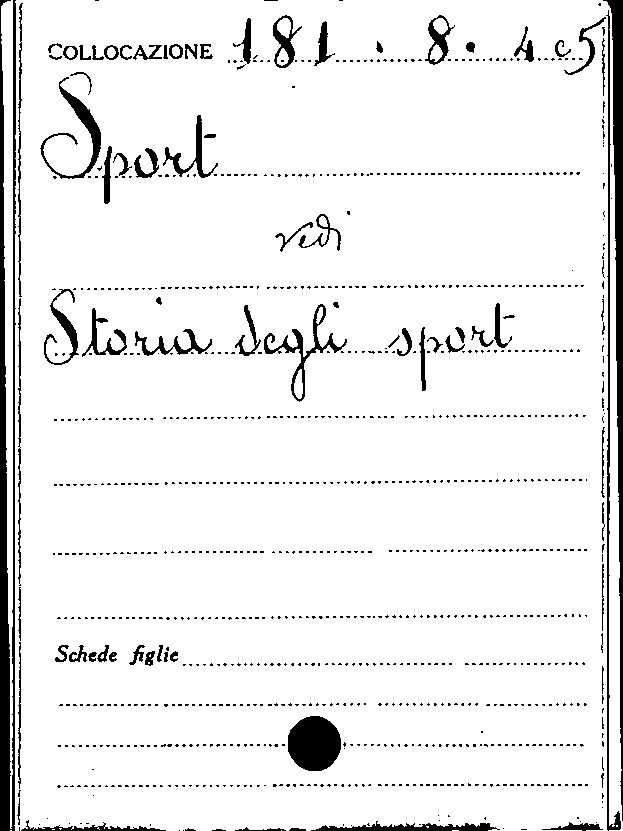 COLLOCAZIONE 181 . 8 . 4 e 5
Sport
vedi
Storia degli sport
Schede figlie